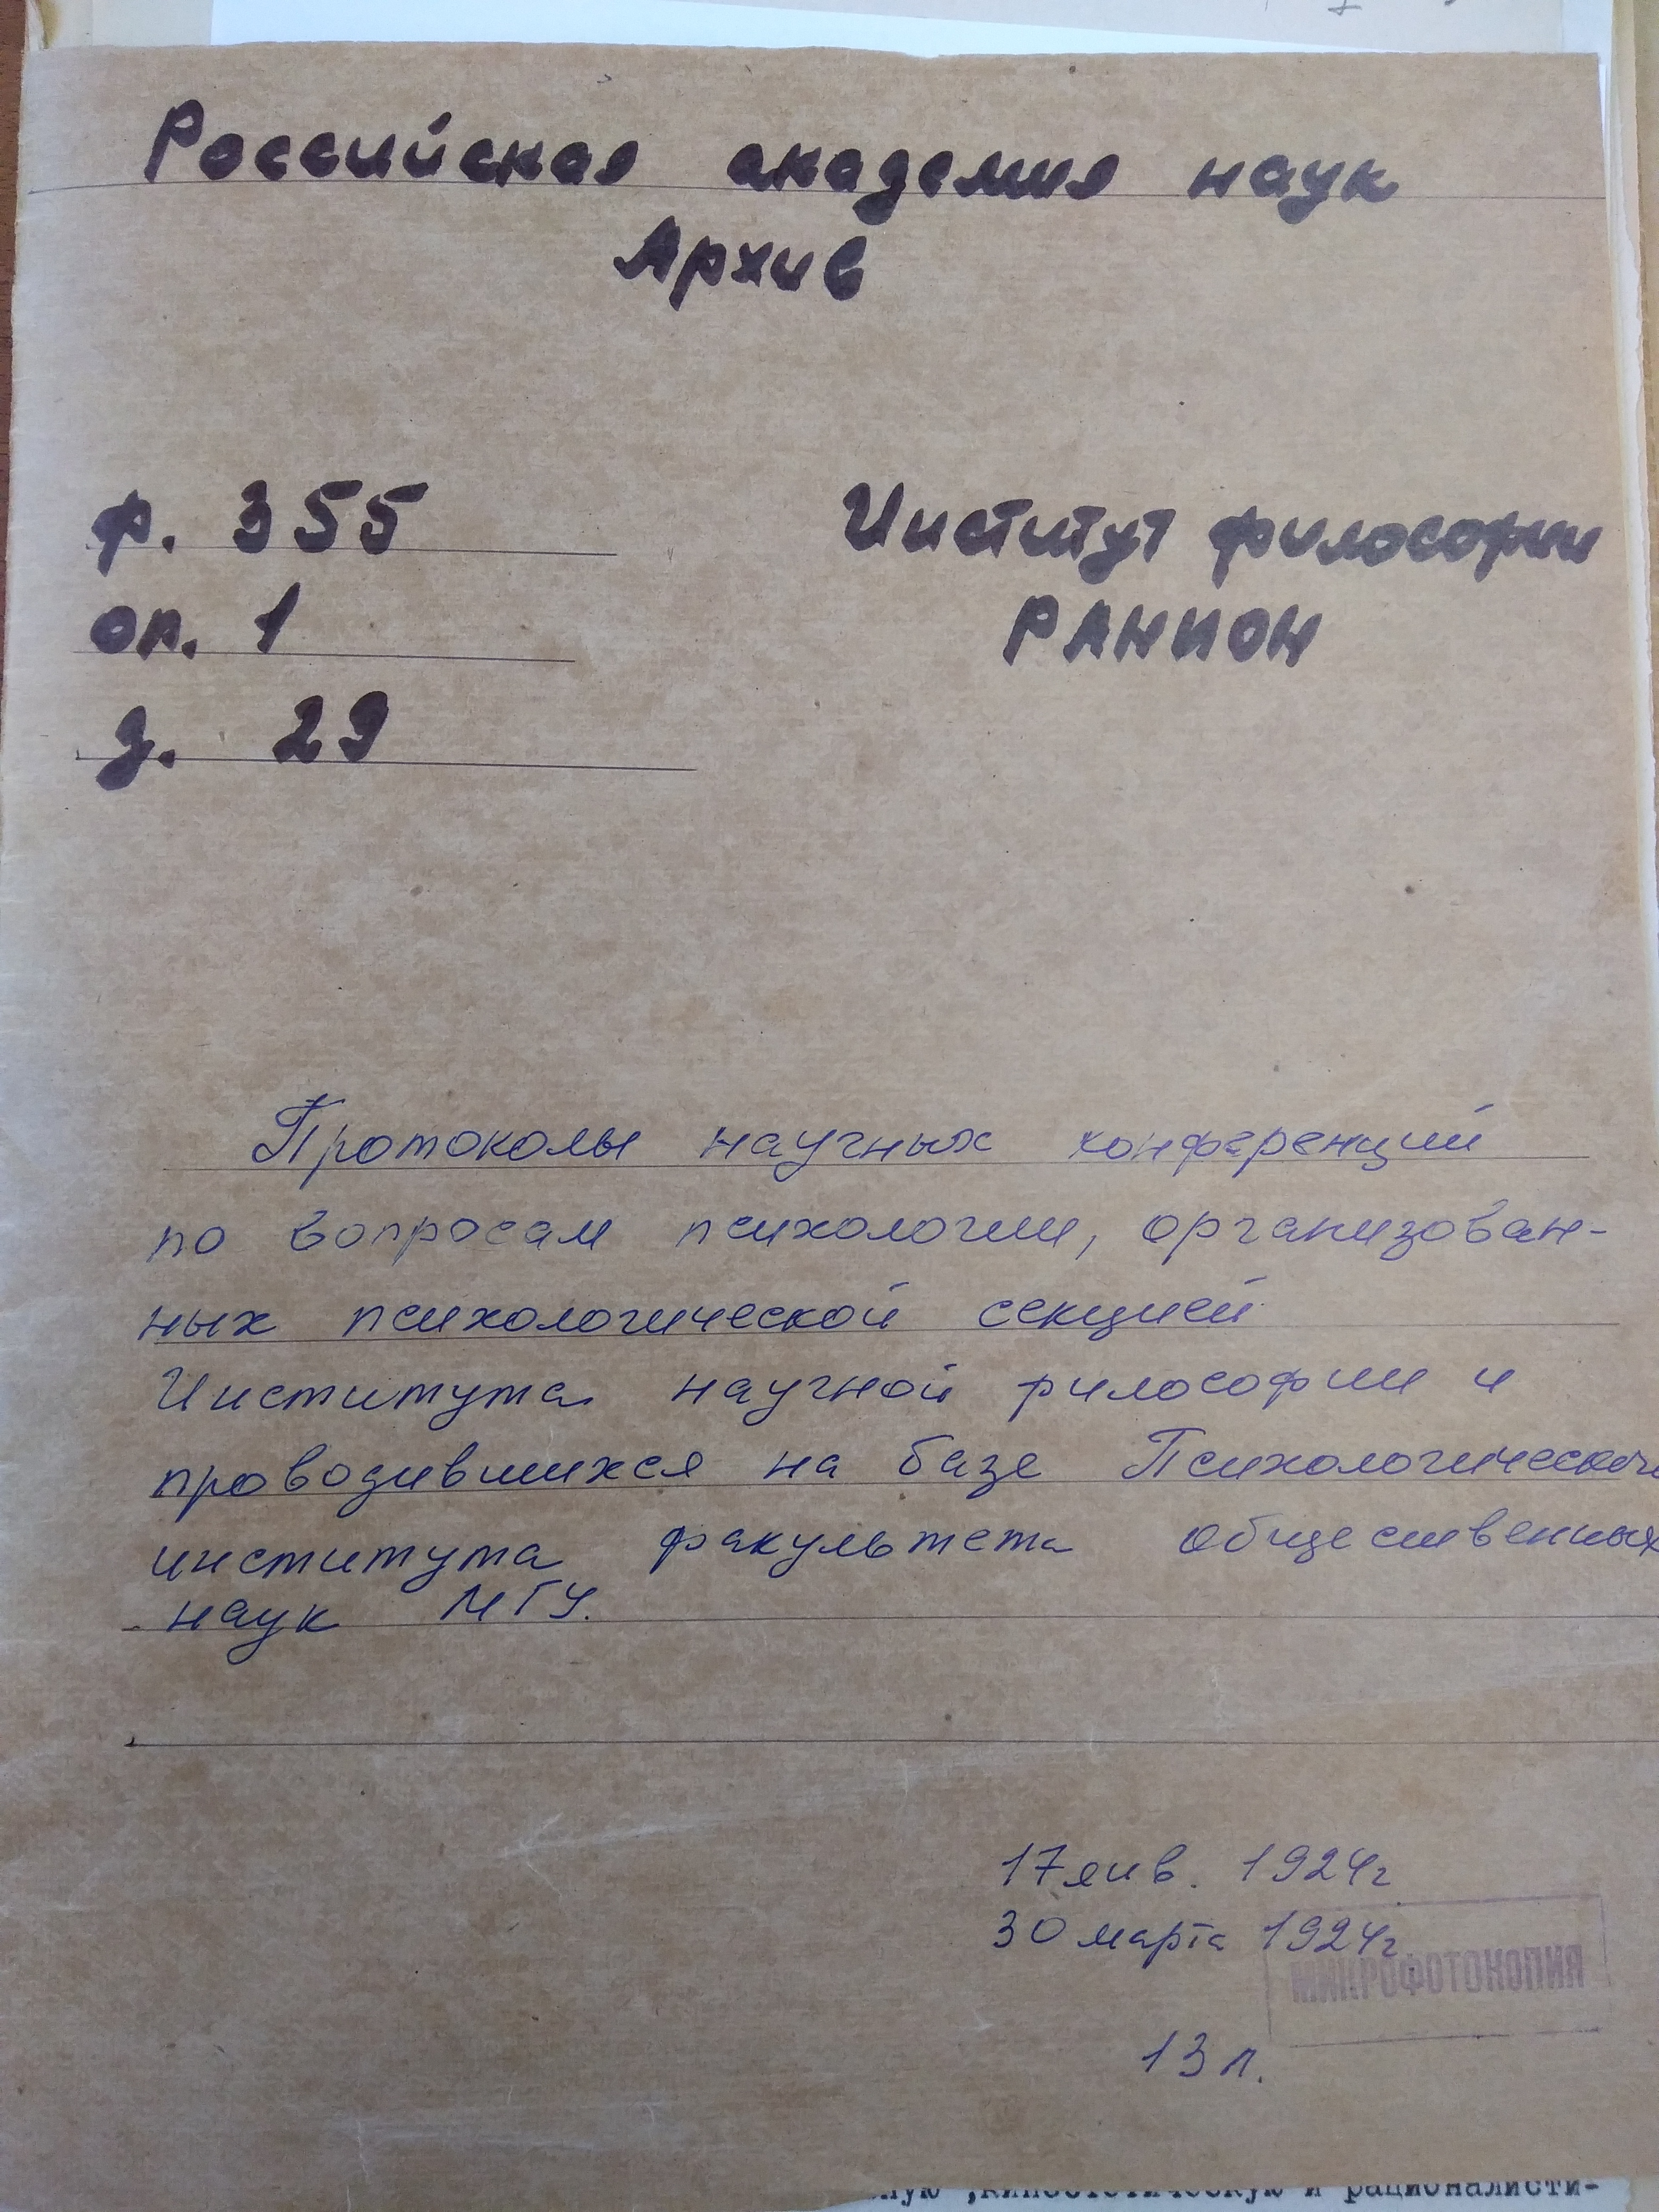 Российская академия наук
Архив
ф. 355
оп. 1
д. 29
Институт философии
РАНИОН
Протоколы научных конференций
по вопросам психологии, организован-
ных психологической секцией
Института научной философии и
проводившихся на базе Психологического
института факультета общественных
наук МГУ.
17 янв. 1924г
30 марта 1924г
МИКРОФОТОКОПИЯ
13 л.
и рационалисти-